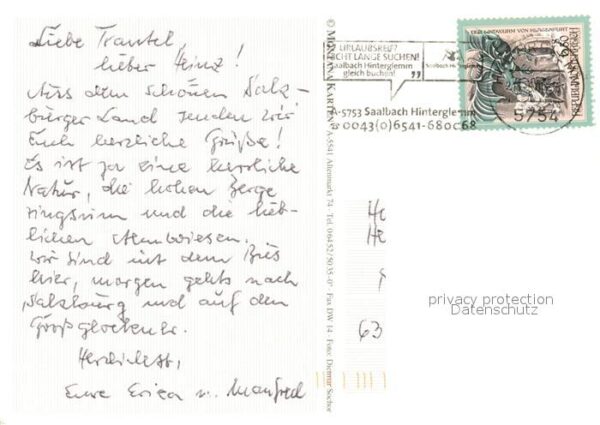 Liebe Trautel,
lieber Heinz!
Aus dem schönen Salz-
burger Land senden wir
Euch herzliche Grüße!
Es ist ja eine herrliche
Natur, die hohen Berge
ringsum und die lieb-
lichen Almwiesen.
Wir sind mit dem Bus
hier, morgen gehts nach
Salzburg und auf den
Großglockner.
Herzlichst,
Eure Erica u. Manfred
© MONTANA KARTEN A-5541 Altenmarkt 74 - Tel. 06452/5035-0* Fax DW 14 - Foto: Dietmar Sochor
URLAUBSREIF?
NICHT LANGE SUCHEN!
Saalbach Hinterglemm
gleich buchen!
A-5753 Saalbach Hinterglemm
0043(0)6541-680068
5754
REPUBLIK ÖSTERREICH
He
He
63
privacy protection
Datenschutz